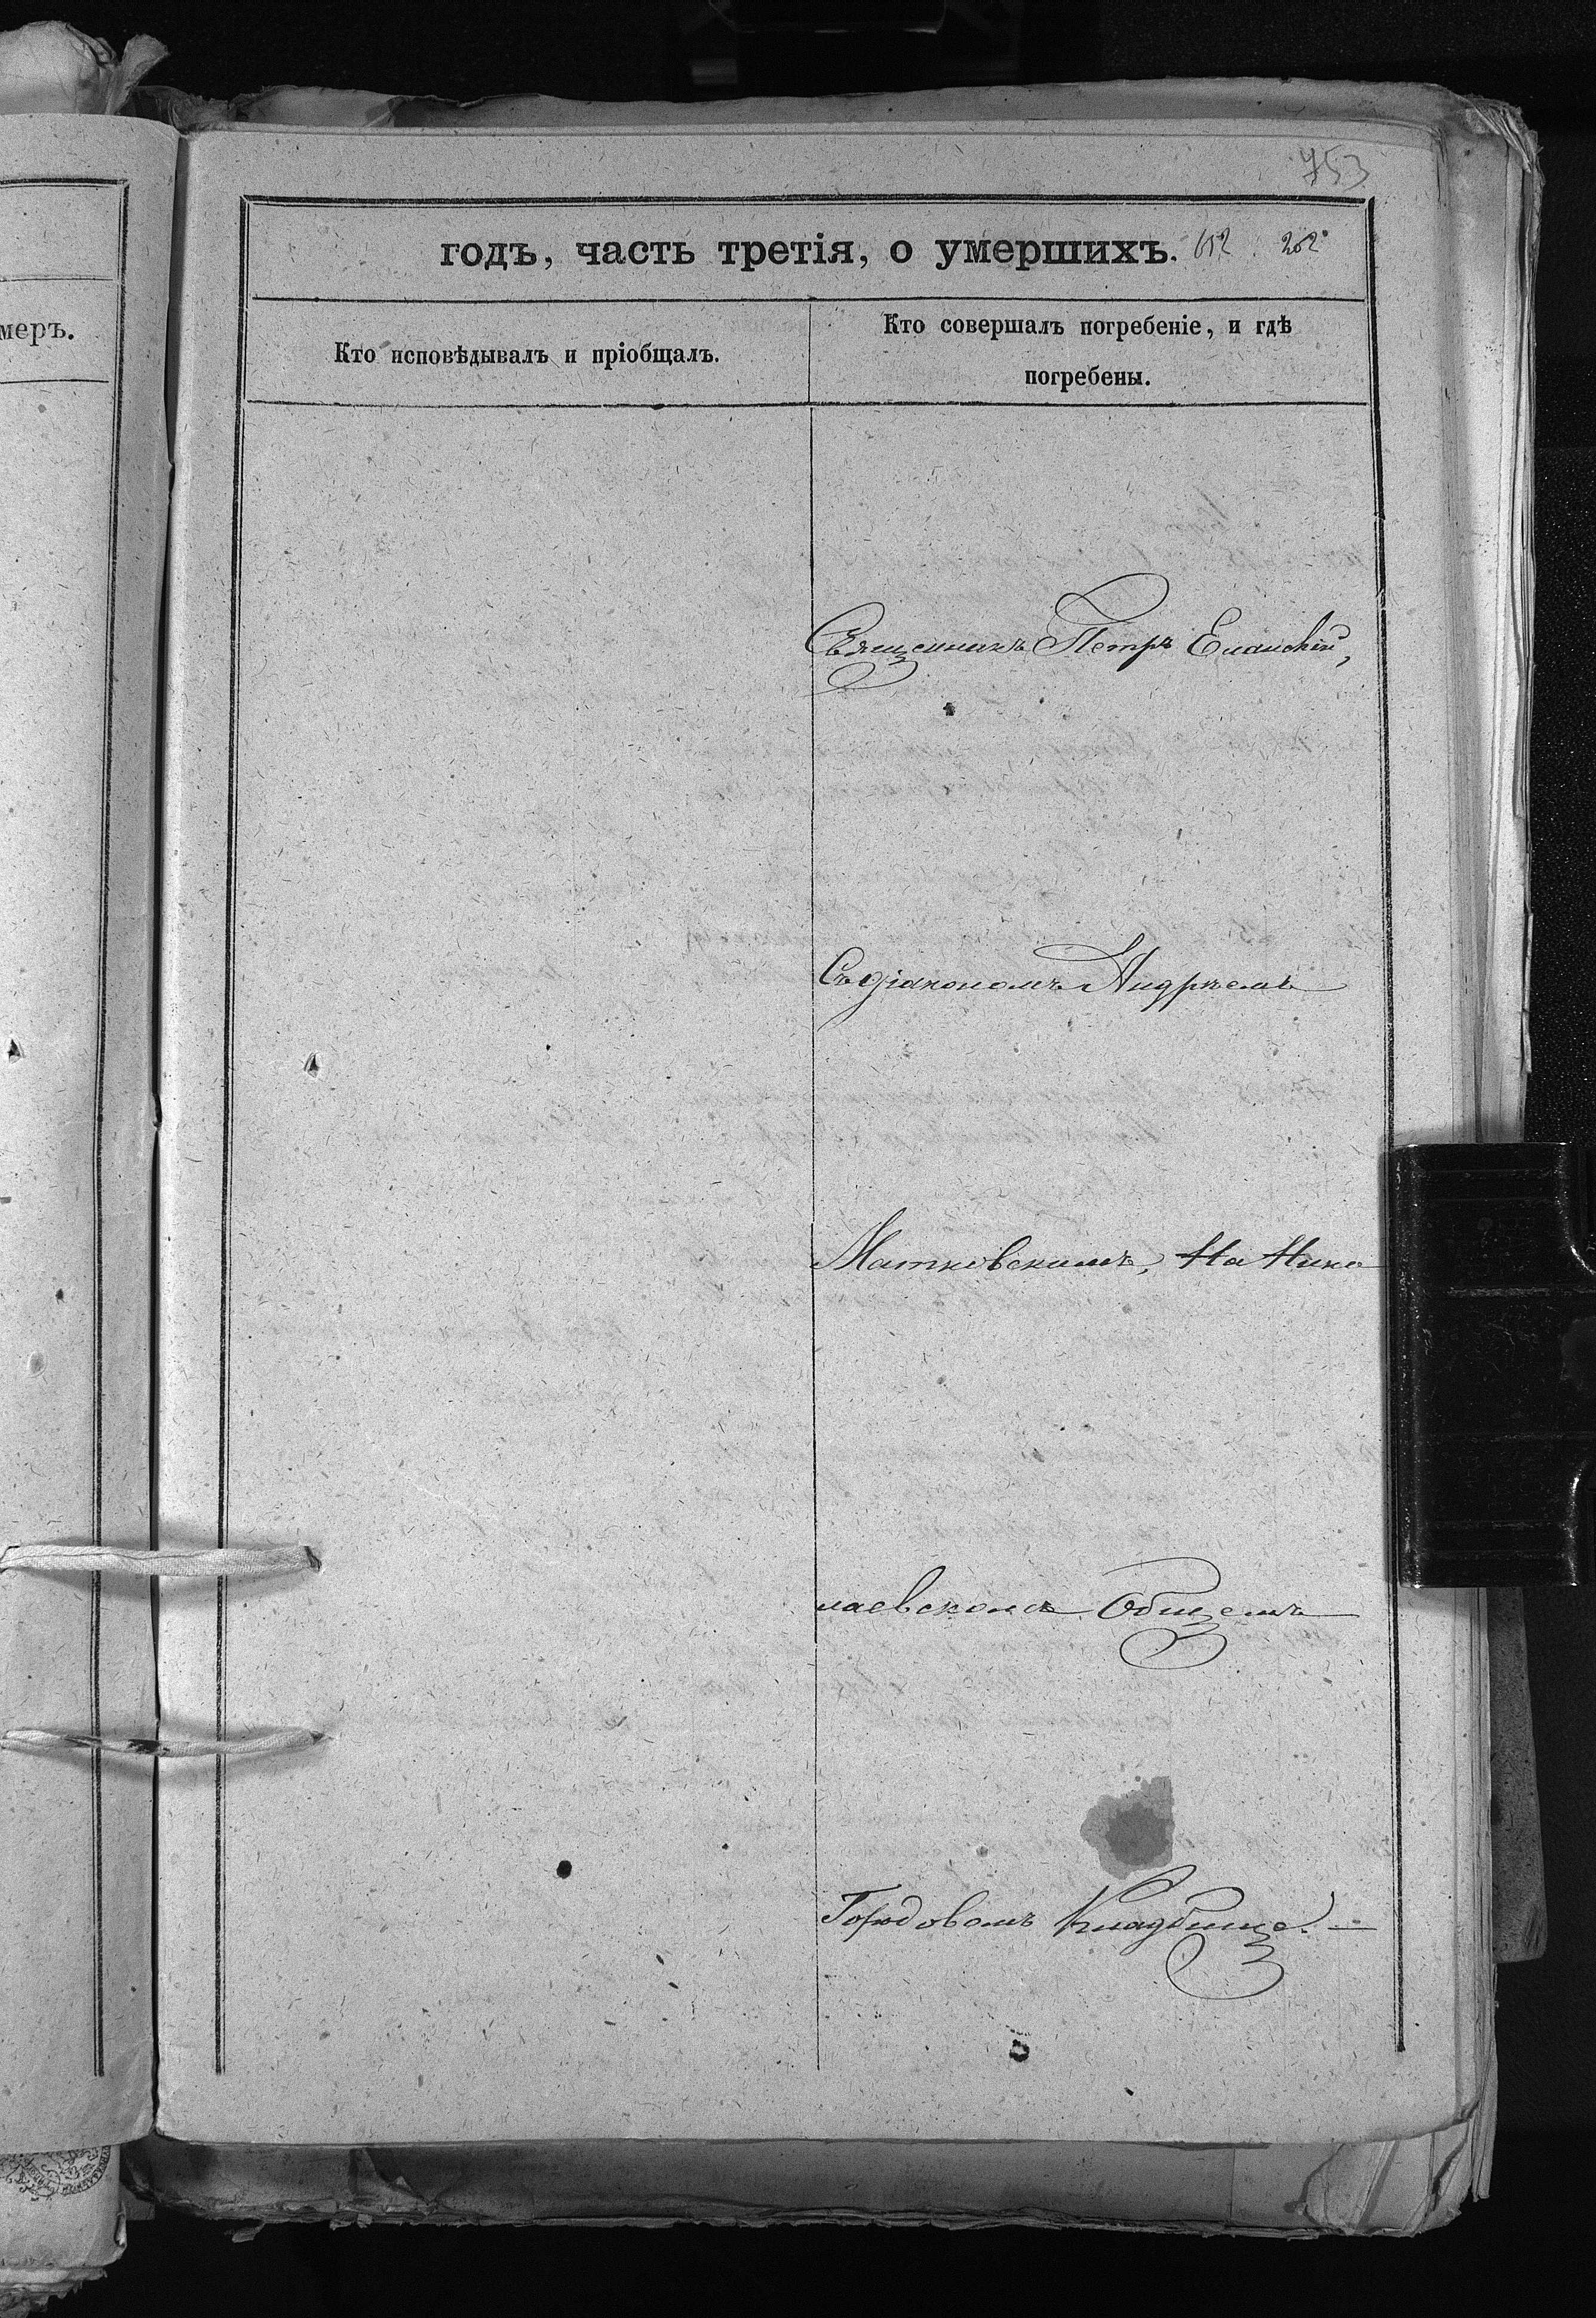 753
годъ, часть третія, о умершихъ. 652 202
меръ.
Кто исповѣдывалъ и пріобщалъ.
Кто совершалъ погребеніе, и гдѣ
погребены.
Священникъ Петръ Еланскій,
Съ діакономъ Андреемъ
Матковскимъ, На Нико
лаевскомъ Общемъ
Городовомъ Кладбище. —